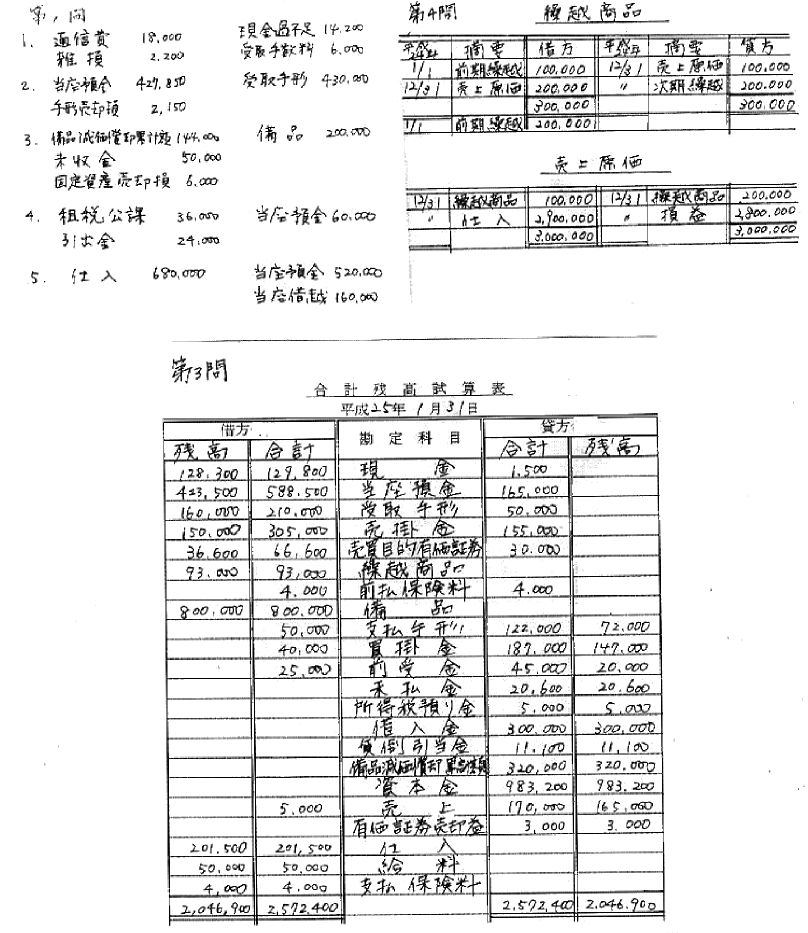 第1問
1. 通信費 18,000 現金過不足 14,200
雑損 2,200 受取手数料 6,000
2. 当座預金 427,850 受取手形 430,000
手形売却損 2,150
3. 備品減価償却累計額 144,000 備品 200,000
未収金 50,000
固定資産売却損 6,000
4. 租税公課 36,000 当座預金 60,000
引出金 24,000
5. 仕入 680,000 当座預金 520,000
当座借越 160,000
第4問 繰越商品
平成24年 摘要 借方 平成24年 摘要 貸方
1/1 前期繰越 100,000 12/31 売上原価 100,000
12/31 売上原価 200,000 〃 次期繰越 200,000
300,000 300,000
1/1 前期繰越 200,000
売上原価
12/31 繰越商品 100,000 12/31 繰越商品 200,000
〃 仕入 2,900,000 〃 損益 2,800,000
3,000,000 3,000,000
第3問
合計残高試算表
平成25年1月31日
借方 勘定科目 貸方
残高 合計 合計 残高
128,300 129,800 現金 1,500
423,500 588,500 当座預金 165,000
160,000 210,000 受取手形 50,000
150,000 305,000 売掛金 155,000
36,600 66,600 売買目的有価証券 30,000
93,000 93,000 繰越商品
4,000 前払保険料 4,000
800,000 800,000 備品
50,000 支払手形 122,000 72,000
40,000 買掛金 187,000 147,000
25,000 前受金 45,000 20,000
未払金 20,600 20,600
所得税預り金 5,000 5,000
借入金 300,000 300,000
貸倒引当金 11,100 11,100
備品減価償却累計額 320,000 320,000
資本金 983,200 983,200
5,000 売上 170,000 165,000
有価証券売却益 3,000 3,000
201,500 201,500 仕入
50,000 50,000 給料
4,000 4,000 支払保険料
2,046,900 2,572,400 2,572,400 2,046,900